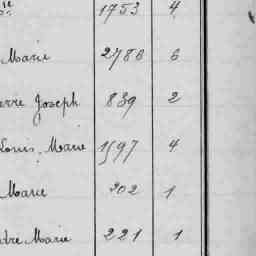 1753 4
Marie 2786 6
Joseph 839 2
Louis, Marie 1597 4
Marie 202 1
Marie 221 1